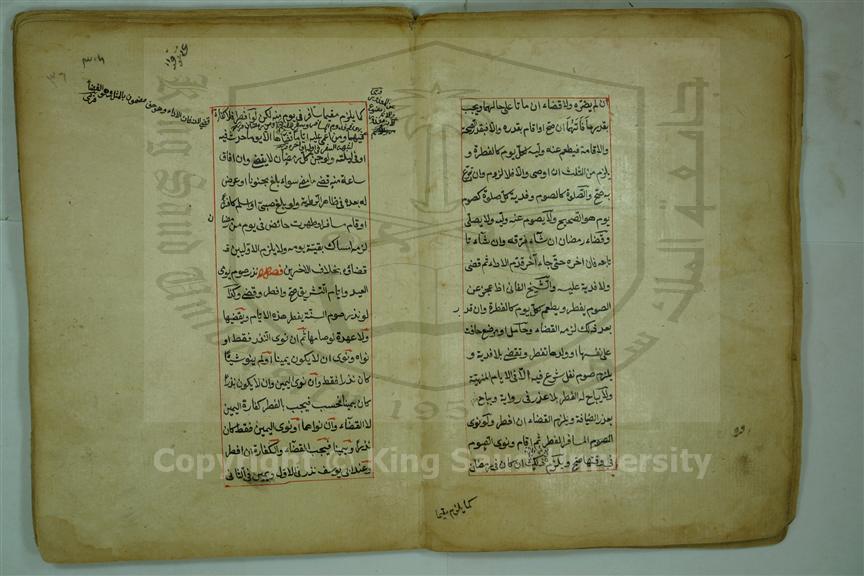 ان لم يضره ولا قضاء ان ماتا على حالهما ويجب
بقدر ما فاتهما ان صح او اقام بقدره والا فبقدر الصحة
والاقامة فيطعم عنه وليه لكل يوم كالفطرة و
يلزم من الثلث ان اوصى والا فلا لزوم وان تبرع
به صح والصلوة كالصوم وفدية كل صلوة كصوم
يوم هو الصحيح ولا يصوم عنه وليه ولا يصلى
وقضاء رمضان ان شاء فرقه وان شاء تا
بعه فان اخره حتى جاء آخر قدم الاداء ثم قضى
ولا فدية عليه والشيخ الفانى اذا عجز عن
الصوم يفطر ويطعم لكل يوم كالفطرة وان قد
بعد ذلك لزمه القضاء وحامل او مرضع خافت
على نفسها او ولدها تفطر وتقضى بلا فدية و
يلزم صوم نفل شرع فيه الا فى الايام المنهية
ولا يباح له الفطر بلا عذر فى رواية ويباح
بعذر الضيافة ويلزم القضاء ان افطر ولو نوى
الصوم المسافر الفطر ثم اقام ونوى الصوم
فى وقتها صح ويلزم ذلك ان كان فى رمضان
كما يلزم مقيما
كما يلزم مقيما سافر فى يوم منه لكن لو افطر فلا كفارة
فيهما ومن اغمى عليه اياما قضاها الا يوما حدث فيه
او فى ليلته ولو جن كل رمضان لا يقضى وان افاق
ساعة منه قضى ما مضى سواء بلغ مجنونا او عرض
له بعده فى ظاهر الرواية ولو بلغ صبى او اسلم كافر
او اقام مسافر او طهرت حائض فى يوم من رمضان
لزمه امساك بقية يومه ولا يلزم الاولين قـ
قضاؤه بخلاف الاخرين فصل نذر صوم يومى
العيد وايام التشريق صح وافطر وقضى وكذا
لو نذر صوم السنة يفطر هذه الايام ويقضيها
ولا عهدة لو صامها ثم ان نوى النذر فقط او
نواه ونوى ان لا يكون يمينا او لم ينو شيئا
كان نذرا فقط وان نوى اليمين وان لا يكون نذرا
كان يمينا فحسب فيجب بالفطر كفارة اليمين
لا القضاء وان نواهما او نوى اليمين فقط كان
نذرا ويمينا فيجب القضاء والكفارة ان افطر
وعند ابى يوسف نذر فى الاول ويمين فى الثانى
Copyright © King Saud University
جامعة الملك سعود
King Saud University
195